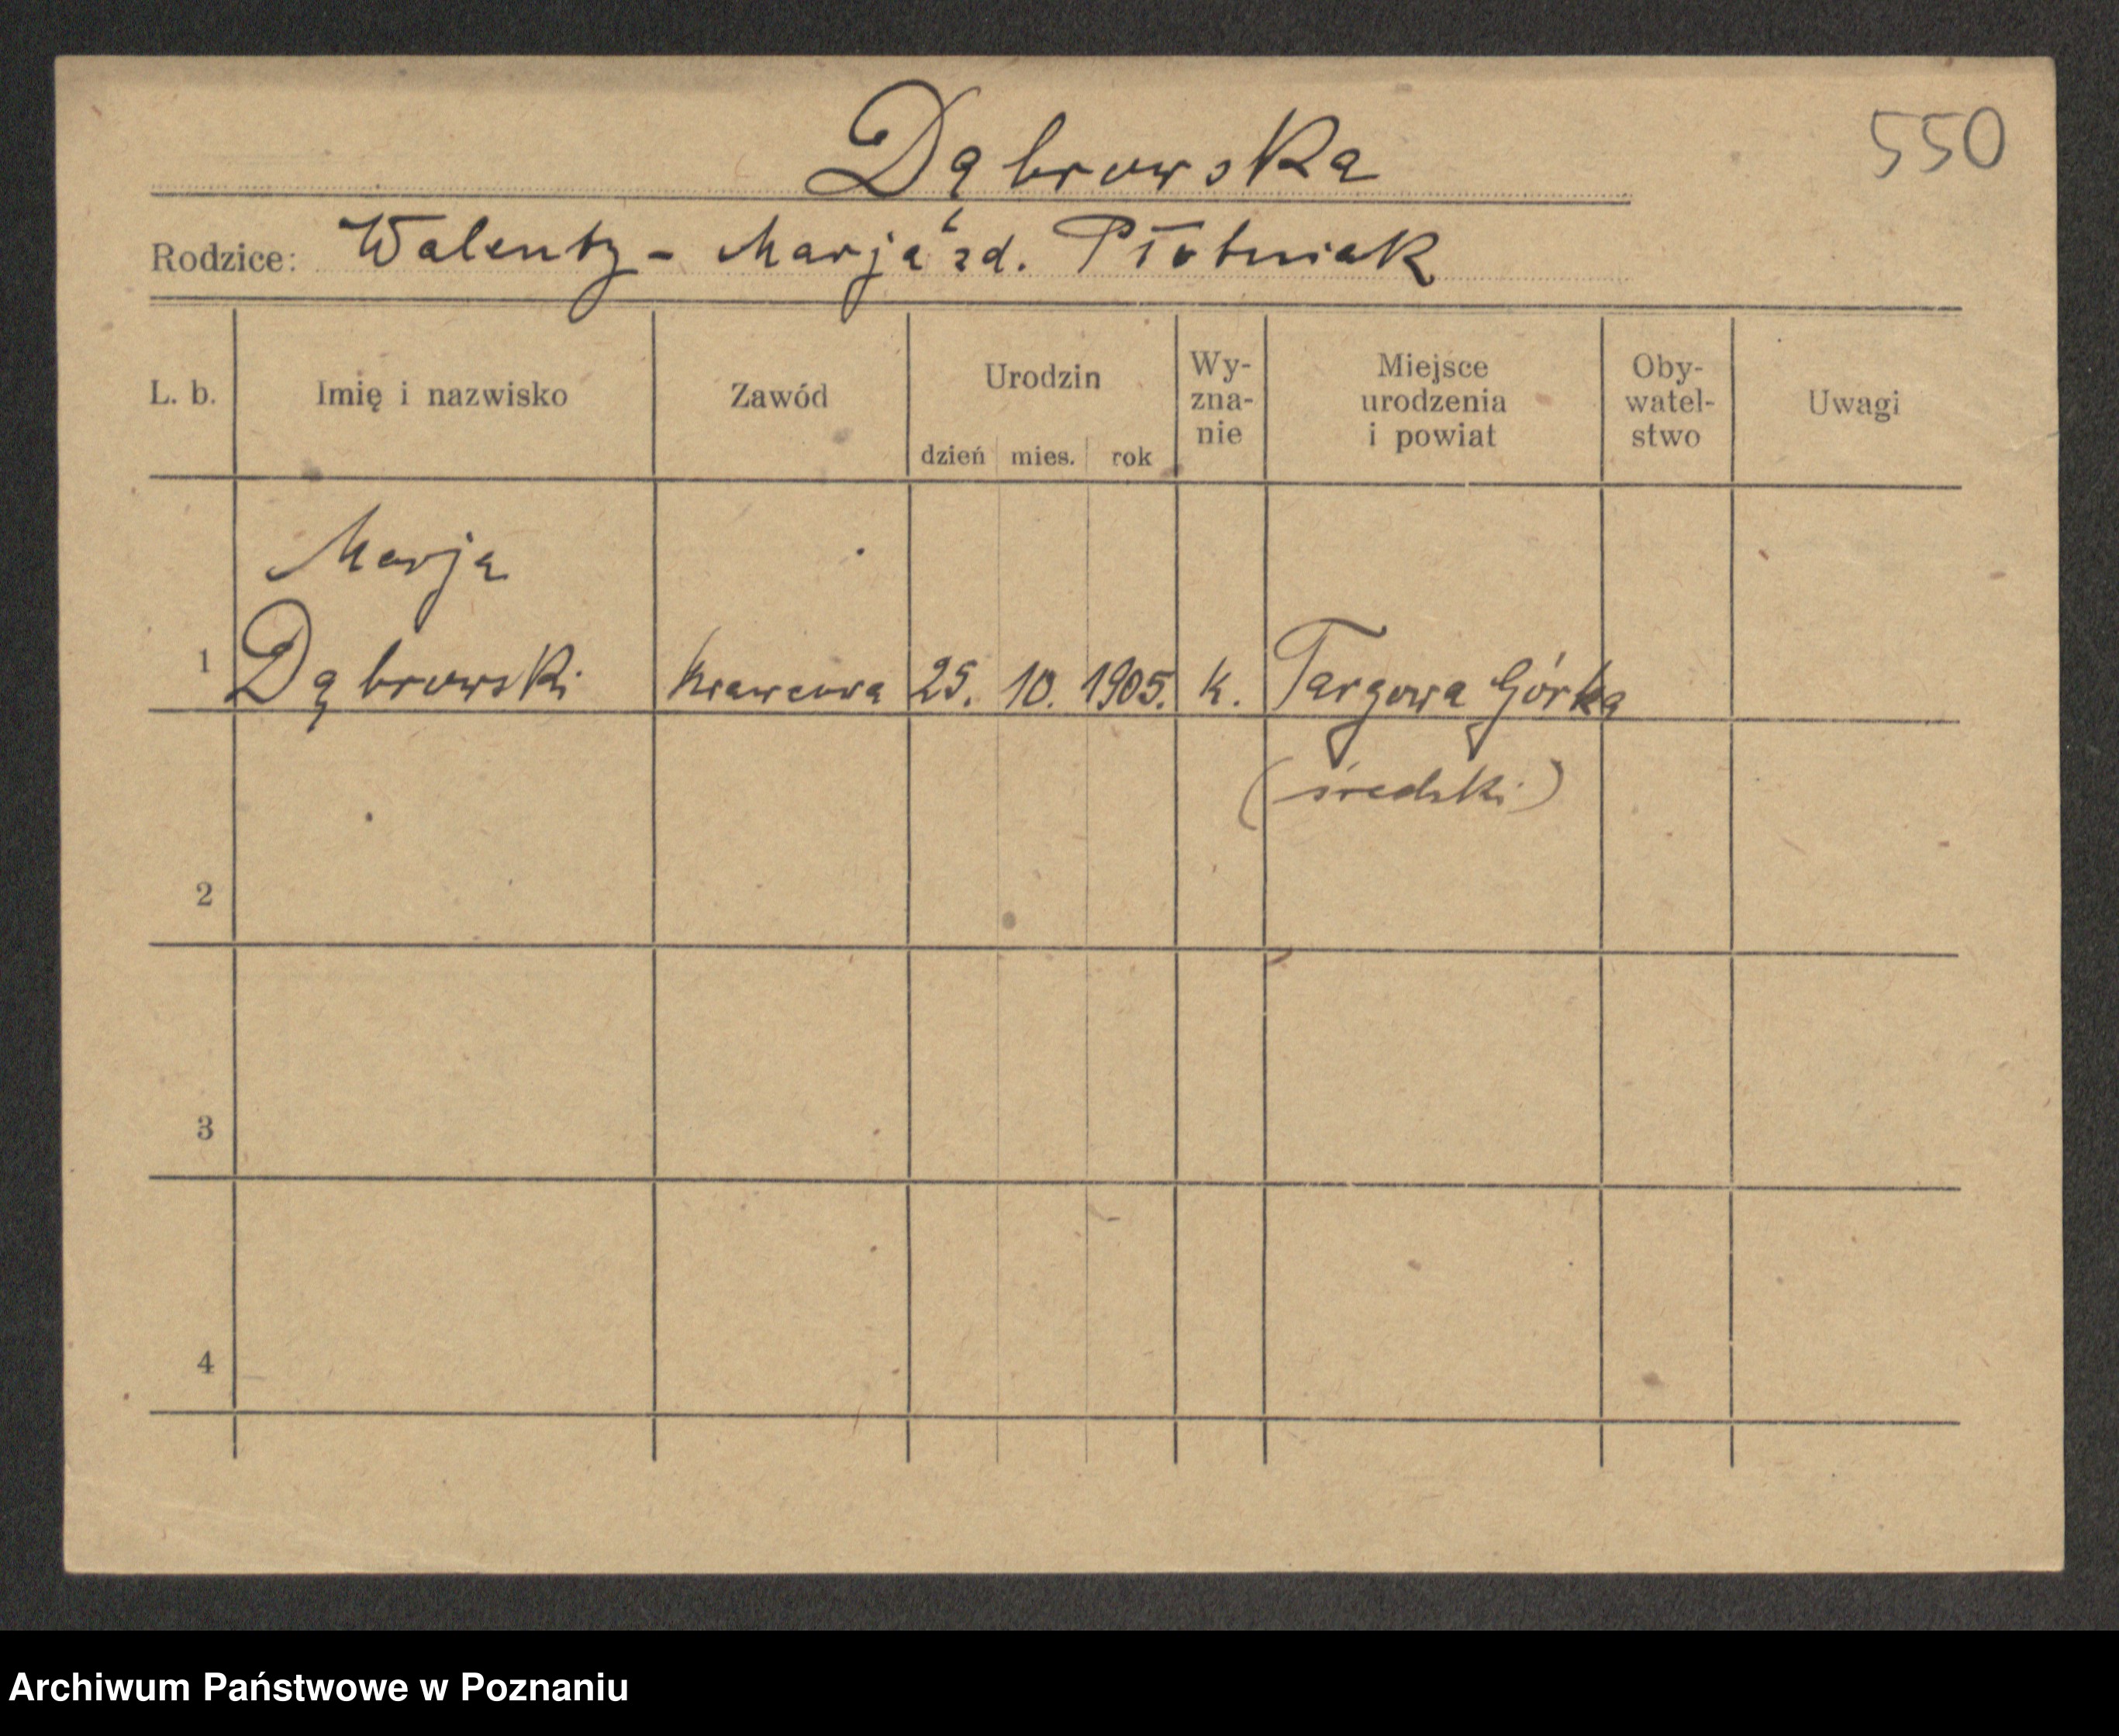 Dąbrowska
550
Rodzice: Walenty - Marja zd. Płotniak
L. b. Imię i nazwisko Zawód Urodzin dzień mies. rok Wy-zna-nie Miejsce urodzenia i powiat Oby-watel-stwo Uwagi
Marja
1 Dąbrowski krawcowa 25. 10. 1905. k. Targowa Górka
(średzki)
2
3
4
Archiwum Państwowe w Poznaniu